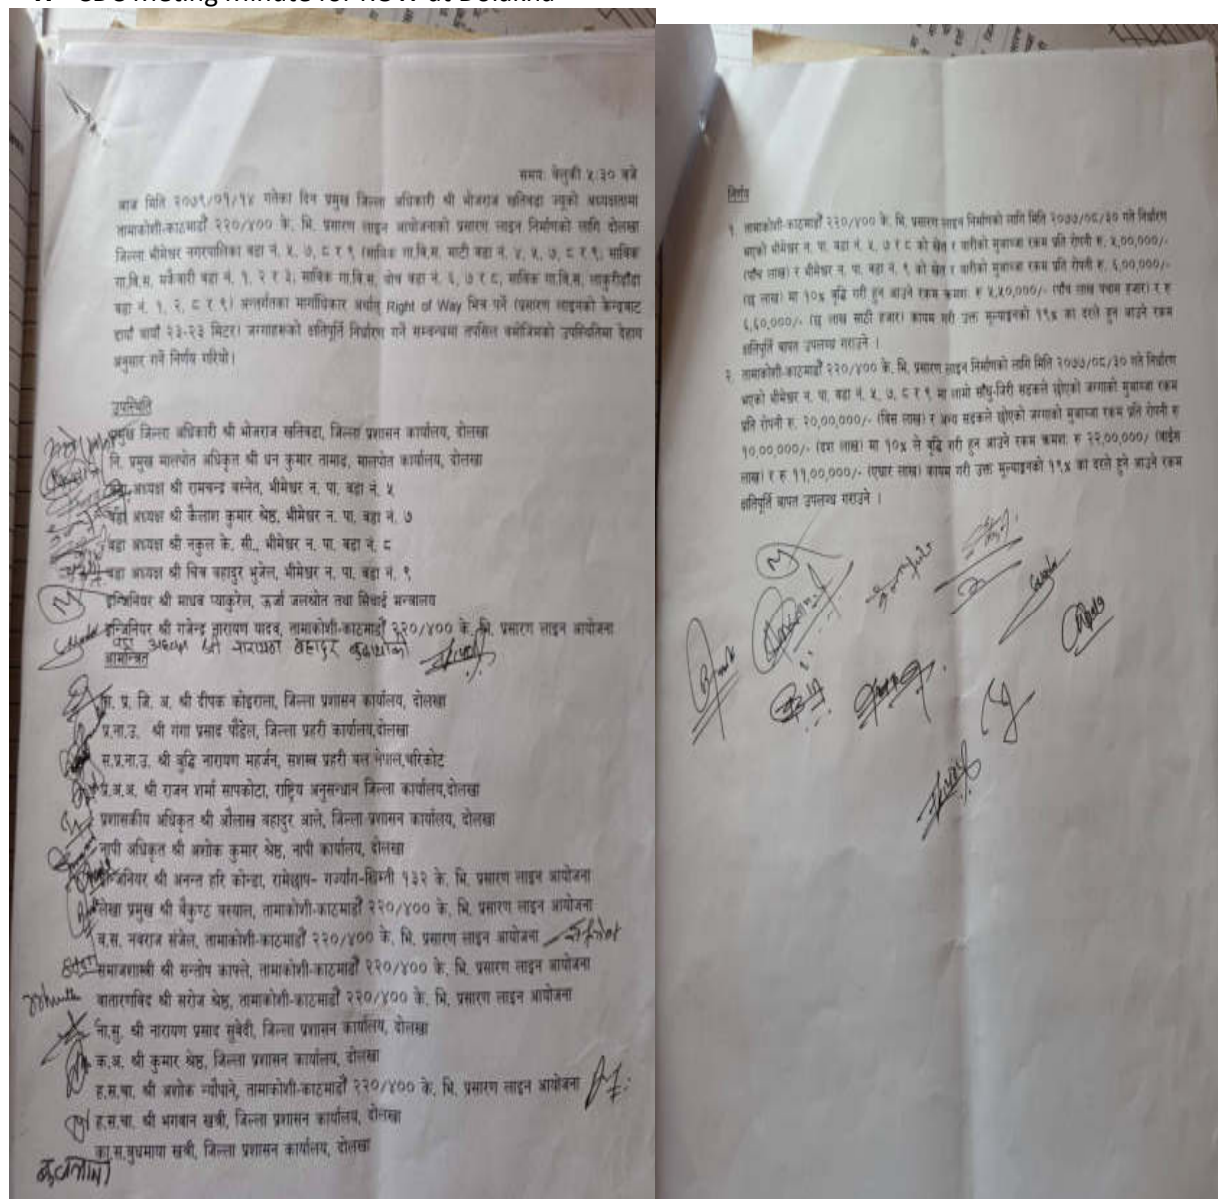 CDC meeting Minute for ROW at Dolakha
समयः बेलुकी ५:३० बजे
आज मिति २०७९/०१/१४ गतेका दिन प्रमुख जिल्ला अधिकारी श्री भोजराज खतिवडा ज्यूको अध्यक्षतामा
तामाकोशी-काठमाडौँ २२०/४०० के. भि. प्रसारण लाइन आयोजनाको प्रसारण लाइन निर्माणको लागि दोलखा
जिल्ला भीमेश्वर नगरपालिका वडा नं. ५, ७, ८ र ९ (साविक गा.वि.स. माटी वडा नं. ४, ५, ७, ८ र ९, साविक
गा.वि.स. मकैबारी वडा नं. १, २ र ३, साविक गा.वि.स. बोच वडा नं. ६, ७ र ८, साविक गा.वि.स. लाकुरीडाँडा
वडा नं. १, २, ८ र ९) अन्तर्गतका मार्गाधिकार अर्थात् Right of Way भित्र पर्ने (प्रसारण लाइनको केन्द्रबाट
दायाँ बायाँ २३-२३ मिटर) जग्गाहरूको क्षतिपूर्ति निर्धारण गर्ने सम्बन्धमा तपसिल बमोजिमको उपस्थितिमा देहाय
अनुसार गर्ने निर्णय गरियो।
उपस्थिति
प्रमुख जिल्ला अधिकारी श्री भोजराज खतिवडा, जिल्ला प्रशासन कार्यालय, दोलखा
नि. प्रमुख मालपोत अधिकृत श्री धन कुमार तामाङ, मालपोत कार्यालय, दोलखा
वडा अध्यक्ष श्री रामचन्द्र बस्नेत, भीमेश्वर न. पा. वडा नं. ५
वडा अध्यक्ष श्री कैलाश कुमार श्रेष्ठ, भीमेश्वर न. पा. वडा नं. ७
वडा अध्यक्ष श्री नकुल के. सी., भीमेश्वर न. पा. वडा नं. ८
वडा अध्यक्ष श्री चित्र बहादुर भुजेल, भीमेश्वर न. पा. वडा नं. ९
इन्जिनियर श्री माधव प्याकुरेल, ऊर्जा जलश्रोत तथा सिंचाई मन्त्रालय
इन्जिनियर श्री गजेन्द्र नारायण यादव, तामाकोशी-काठमाडौँ २२०/४०० के. भि. प्रसारण लाइन आयोजना
वडा अध्यक्ष श्री नारायण बहादुर बुढाथोकी
आमन्त्रित
स. प्र. जि. अ. श्री दीपक कोइराला, जिल्ला प्रशासन कार्यालय, दोलखा
प्र.ना.उ. श्री गंगा प्रसाद पौडेल, जिल्ला प्रहरी कार्यालय,दोलखा
स.प्र.ना.उ. श्री बुद्धि नारायण महर्जन, सशस्त्र प्रहरी बल नेपाल,चरिकोट
प्र.अ.अ. श्री राजन शर्मा सापकोटा, राष्ट्रिय अनुसन्धान जिल्ला कार्यालय,दोलखा
प्रशासकीय अधिकृत श्री औलाख बहादुर आले, जिल्ला प्रशासन कार्यालय, दोलखा
नापी अधिकृत श्री अशोक कुमार श्रेष्ठ, नापी कार्यालय, दोलखा
इन्जिनियर श्री अनन्त हरि कोन्डा, रामेछाप- गर्ज्याङ-खिम्ती १३२ के. भि. प्रसारण लाइन आयोजना
लेखा प्रमुख श्री बैकुण्ठ बस्याल, तामाकोशी-काठमाडौँ २२०/४०० के. भि. प्रसारण लाइन आयोजना
व.स. नवराज संजेल, तामाकोशी-काठमाडौँ २२०/४०० के. भि. प्रसारण लाइन आयोजना
समाजशास्त्री श्री सन्तोष काफ्ले, तामाकोशी-काठमाडौँ २२०/४०० के. भि. प्रसारण लाइन आयोजना
वातारणविद श्री सरोज श्रेष्ठ, तामाकोशी-काठमाडौँ २२०/४०० के. भि. प्रसारण लाइन आयोजना
ना.सु. श्री नारायण प्रसाद सुवेदी, जिल्ला प्रशासन कार्यालय, दोलखा
क.अ. श्री कुमार श्रेष्ठ, जिल्ला प्रशासन कार्यालय, दोलखा
ह.स.चा. श्री अशोक न्यौपाने, तामाकोशी-काठमाडौँ २२०/४०० के. भि. प्रसारण लाइन आयोजना
ह.स.चा. श्री भगवान खत्री, जिल्ला प्रशासन कार्यालय, दोलखा
का.स.बुधमाया खत्री, जिल्ला प्रशासन कार्यालय, दोलखा
निर्णय
१. तामाकोशी-काठमाडौँ २२०/४०० के. भि. प्रसारण लाइन निर्माणको लागि मिति २०७७/०८/३० गते निर्धारण
भएको भीमेश्वर न. पा. वडा नं. ५, ७ र ८ को खेत र बारीको मुवाब्जा रकम प्रति रोपनी रु. ५,००,०००/-
(पाँच लाख) र भीमेश्वर न. पा. वडा नं. ९ को खेत र बारीको मुवाब्जा रकम प्रति रोपनी रु. ६,००,०००/-
(छ लाख) मा १०% बृद्धि गरी हुन आउने रकम क्रमशः रु ५,५०,०००/- (पाँच लाख पचास हजार) र रु
६,६०,०००/- (छ लाख साठी हजार) कायम गरी उक्त मूल्याङ्कनको १९% का दरले हुन आउने रकम
क्षतिपूर्ति बापत उपलब्ध गराउने ।
२. तामाकोशी-काठमाडौँ २२०/४०० के. भि. प्रसारण लाइन निर्माणको लागि मिति २०७७/०८/३० गते निर्धारण
भएको भीमेश्वर न. पा. वडा नं. ५, ७, ८ र ९ मा लामो साँघु-जिरी सडकले छोएको जग्गाको मुवाब्जा रकम
प्रति रोपनी रु. २०,००,०००/- (बिस लाख) र अन्य सडकले छोएको जग्गाको मुवाब्जा रकम प्रति रोपनी रु
१०,००,०००/- (दश लाख) मा १०% ले बृद्धि गरी हुन आउने रकम क्रमशः रु २२,००,०००/ (बाईस
लाख) र रु ११,००,०००/- (एघार लाख) कायम गरी उक्त मूल्याङ्कनको १९% का दरले हुने आउने रकम
क्षतिपूर्ति बापत उपलब्ध गराउने ।